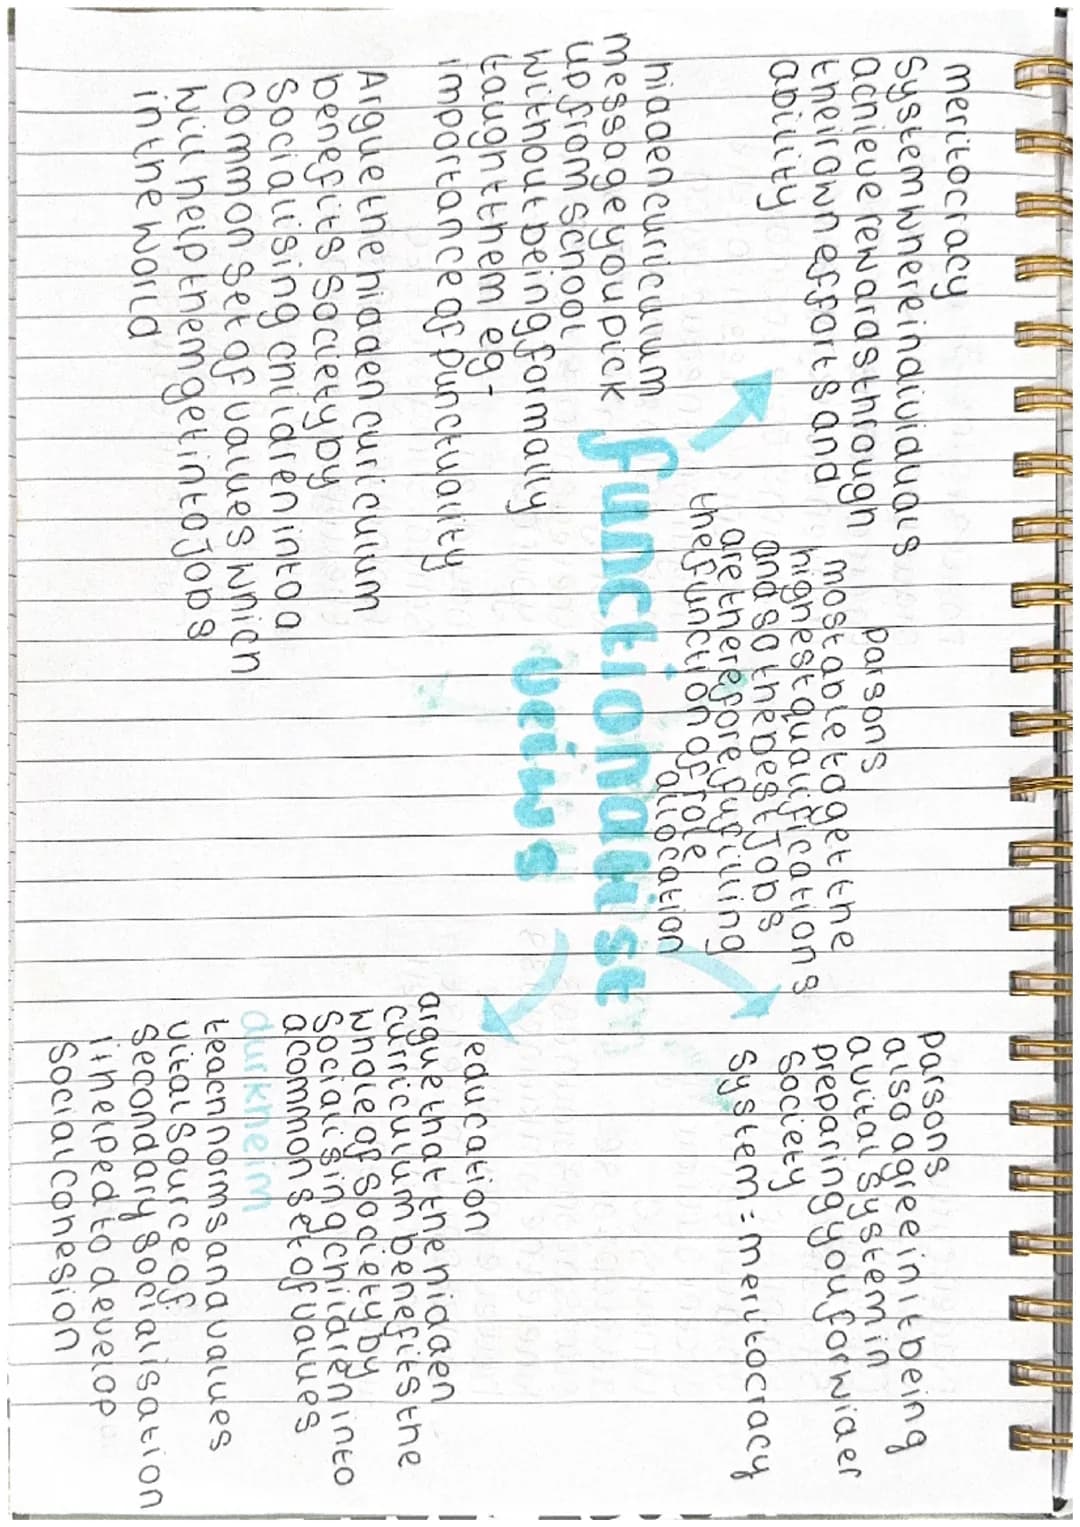 meritocracy
system where individuals
achieve rewards through
their own efforts and
ability
hidden curiculum
message you pick
up from school
without being formally
taught them eg-
importance of punctuality
Argue the hidden curiculum
benefits society by
socialising children into a
common set of values which
will help them get into Jobs
in the world
functionalist
veiws
parsons
most able to get the
highest qualifications
and so the best Jobs
are therefore fufilling
the function of role
allocation
parsons
also agree in it being
a vital system in
preparing you for wider
society
system = meritocracy
education
argue that the hidden
curriculum benefits the
whole of society by
socialising children into
a common set of values
durkheim
teach norms and values
vital source of
secondary socialisation
it helped to develop
social cohesion